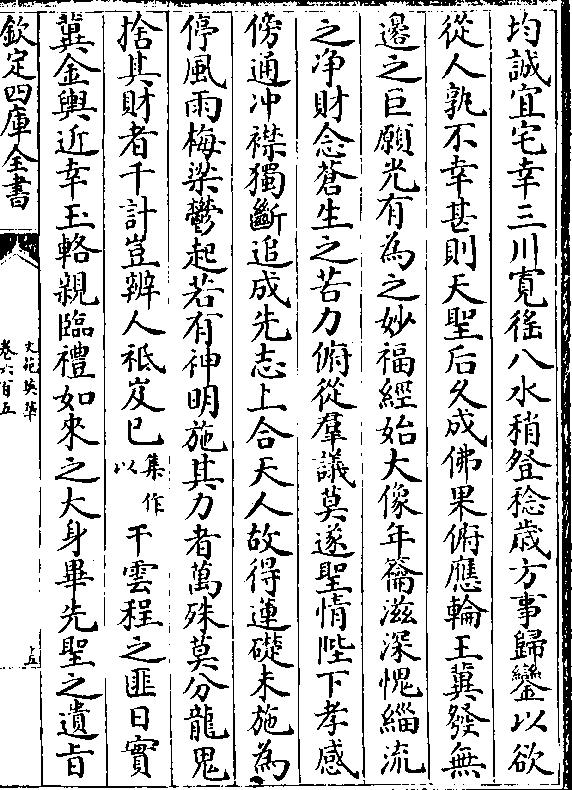 均誠宜宅幸三川寛徭八水稍登稔歳方事歸鑾以欲
從人孰不幸甚則天聖后久成佛果俯應輪王冀發無
邉之巨願光有為之妙福經始大像年籥滋深愧緇流
之浄財念蒼生之苦力俯從羣議莫遂聖情陛下孝感
傍通冲襟獨斷追成先志上合天人故得蓮礎未施為
停風雨梅梁鬱起若有神明施其力者萬殊莫分龍鬼
捨其財者千計豈辨人祗岌已集作以干雲程之匪日實
冀金輿近幸玉輅親臨禮如來之大身畢先聖之遺旨
欽定四庫全書
文苑英華
卷六百五
十五